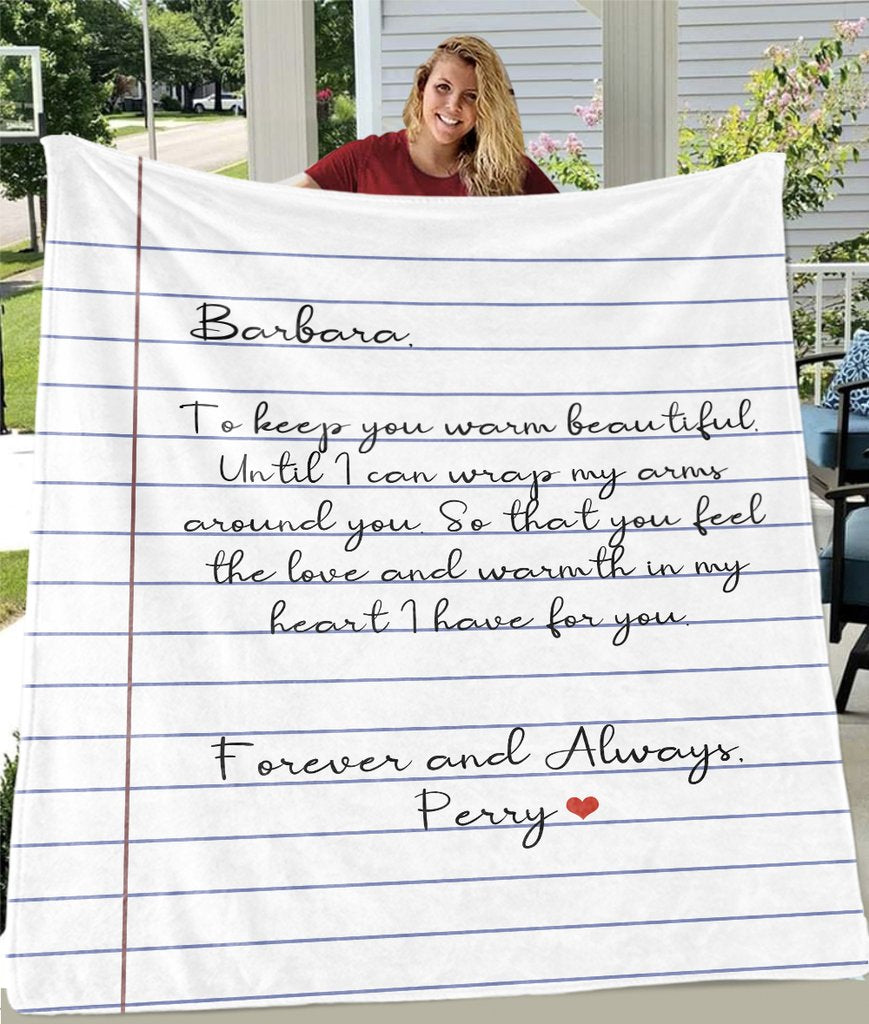 Barbara,
To keep you warm beautiful.
Until I can wrap my arms
around you. So that you feel
the love and warmth in my
heart I have for you.
Forever and Always,
Perry